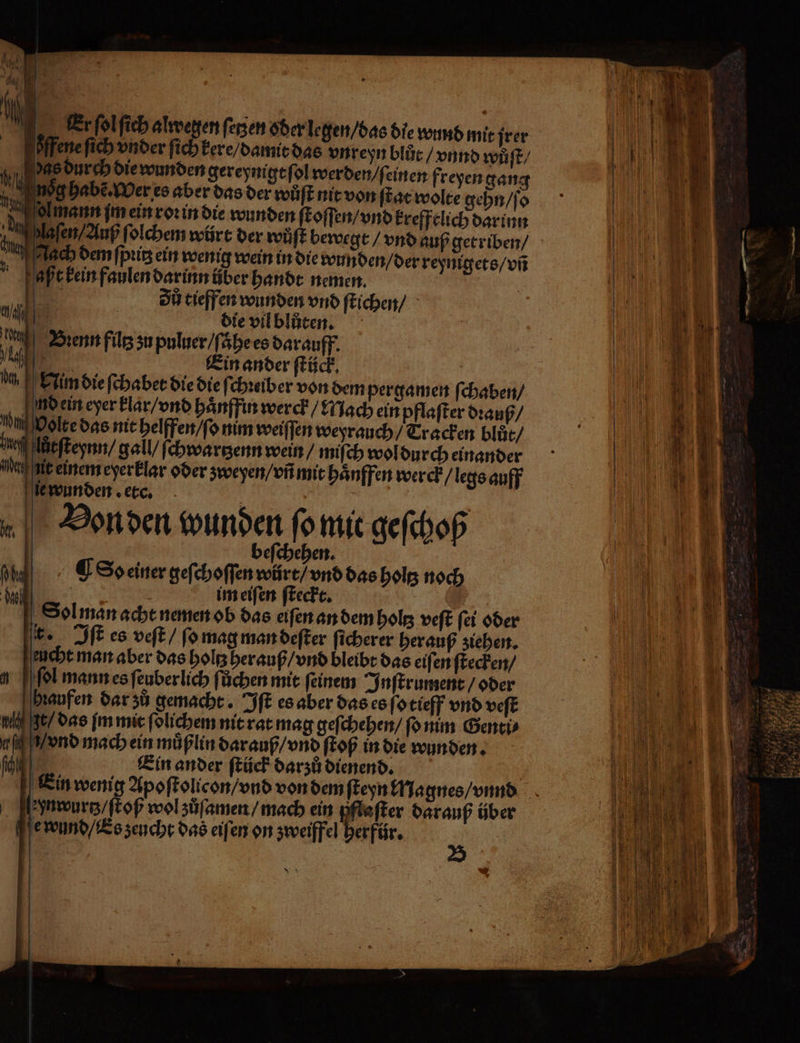 Er ſol ſich alwegen ſetzen oder legen/das die wund mit jrer
öffene ſich vnder ſich kere/damit das vnreyn blůt/vnnd wůſt/
das durch die wunden gereynigt ſol werden/ſeinen freyen gang
mög habẽ. Wer es aber das der wůſt nit von ſtat wolte gehn/ſo
ſol mann jm ein ror in die wunden ſtoſſen/vnd kreffelich darinn
blaſen/Auß ſolchem würt der wůſt bewegt/vnd auß getriben/
Nach dem ſpritz ein wenig wein in die wunden/der reynigets/vñ
laßt kein faulen darinn über handt nemen.
Zů tieffen wunden vnd ſtichen/
die vil blůten.
Brenn filtz zu puluer/ſåhe es darauff.
Ein ander ſtück.
Nim die ſchabet die die ſchreiber von dem pergamen ſchaben/
vnd ein eyer klar/vnd hånffin werck/Mach ein pflaſter drauß/
Wolte das nit helffen/ſo nim weiſſen weyrauch/Tracken blůt/
Blůtſteynn/gall/ſchwartzenn wein/miſch wol durch einander
mit einem eyerklar oder zweyen/vñ mit hånffen werck/legs auff
die wunden. etc.
Von den wunden ſo mit geſchoß
beſchehen.
¶ So einer geſchoſſen würt/vnd das holtz noch
im eiſen ſteckt.
Sol man acht nemen ob das eiſen an dem holtz veſt ſei oder
Iſt es veſt/ſo mag man deſter ſicherer herauß ziehen.
zeucht man aber das holtz herauß/vnd bleibt das eiſen ſtecken/
ſol mann es ſeuberlich ſůchen mit ſeinem Inſtrument/oder
ſchraufen dar zů gemacht. Iſt es aber das es ſo tieff vnd veſt
ligt/das jm mit ſolichem nit rat mag geſchehen/ſo nim Genti⸗
an/vnd mach ein můßlin darauß/vnd ſtoß in die wunden.
Ein ander ſtück darzů dienend.
Ein wenig Apoſtolicon/vnd von dem ſteyn Magnes/vnnd
reynwurtz/ſtoß wol zůſamen/mach ein pflaſter darauß über
die wund/Es zeucht das eiſen on zweiffel herfür.
B